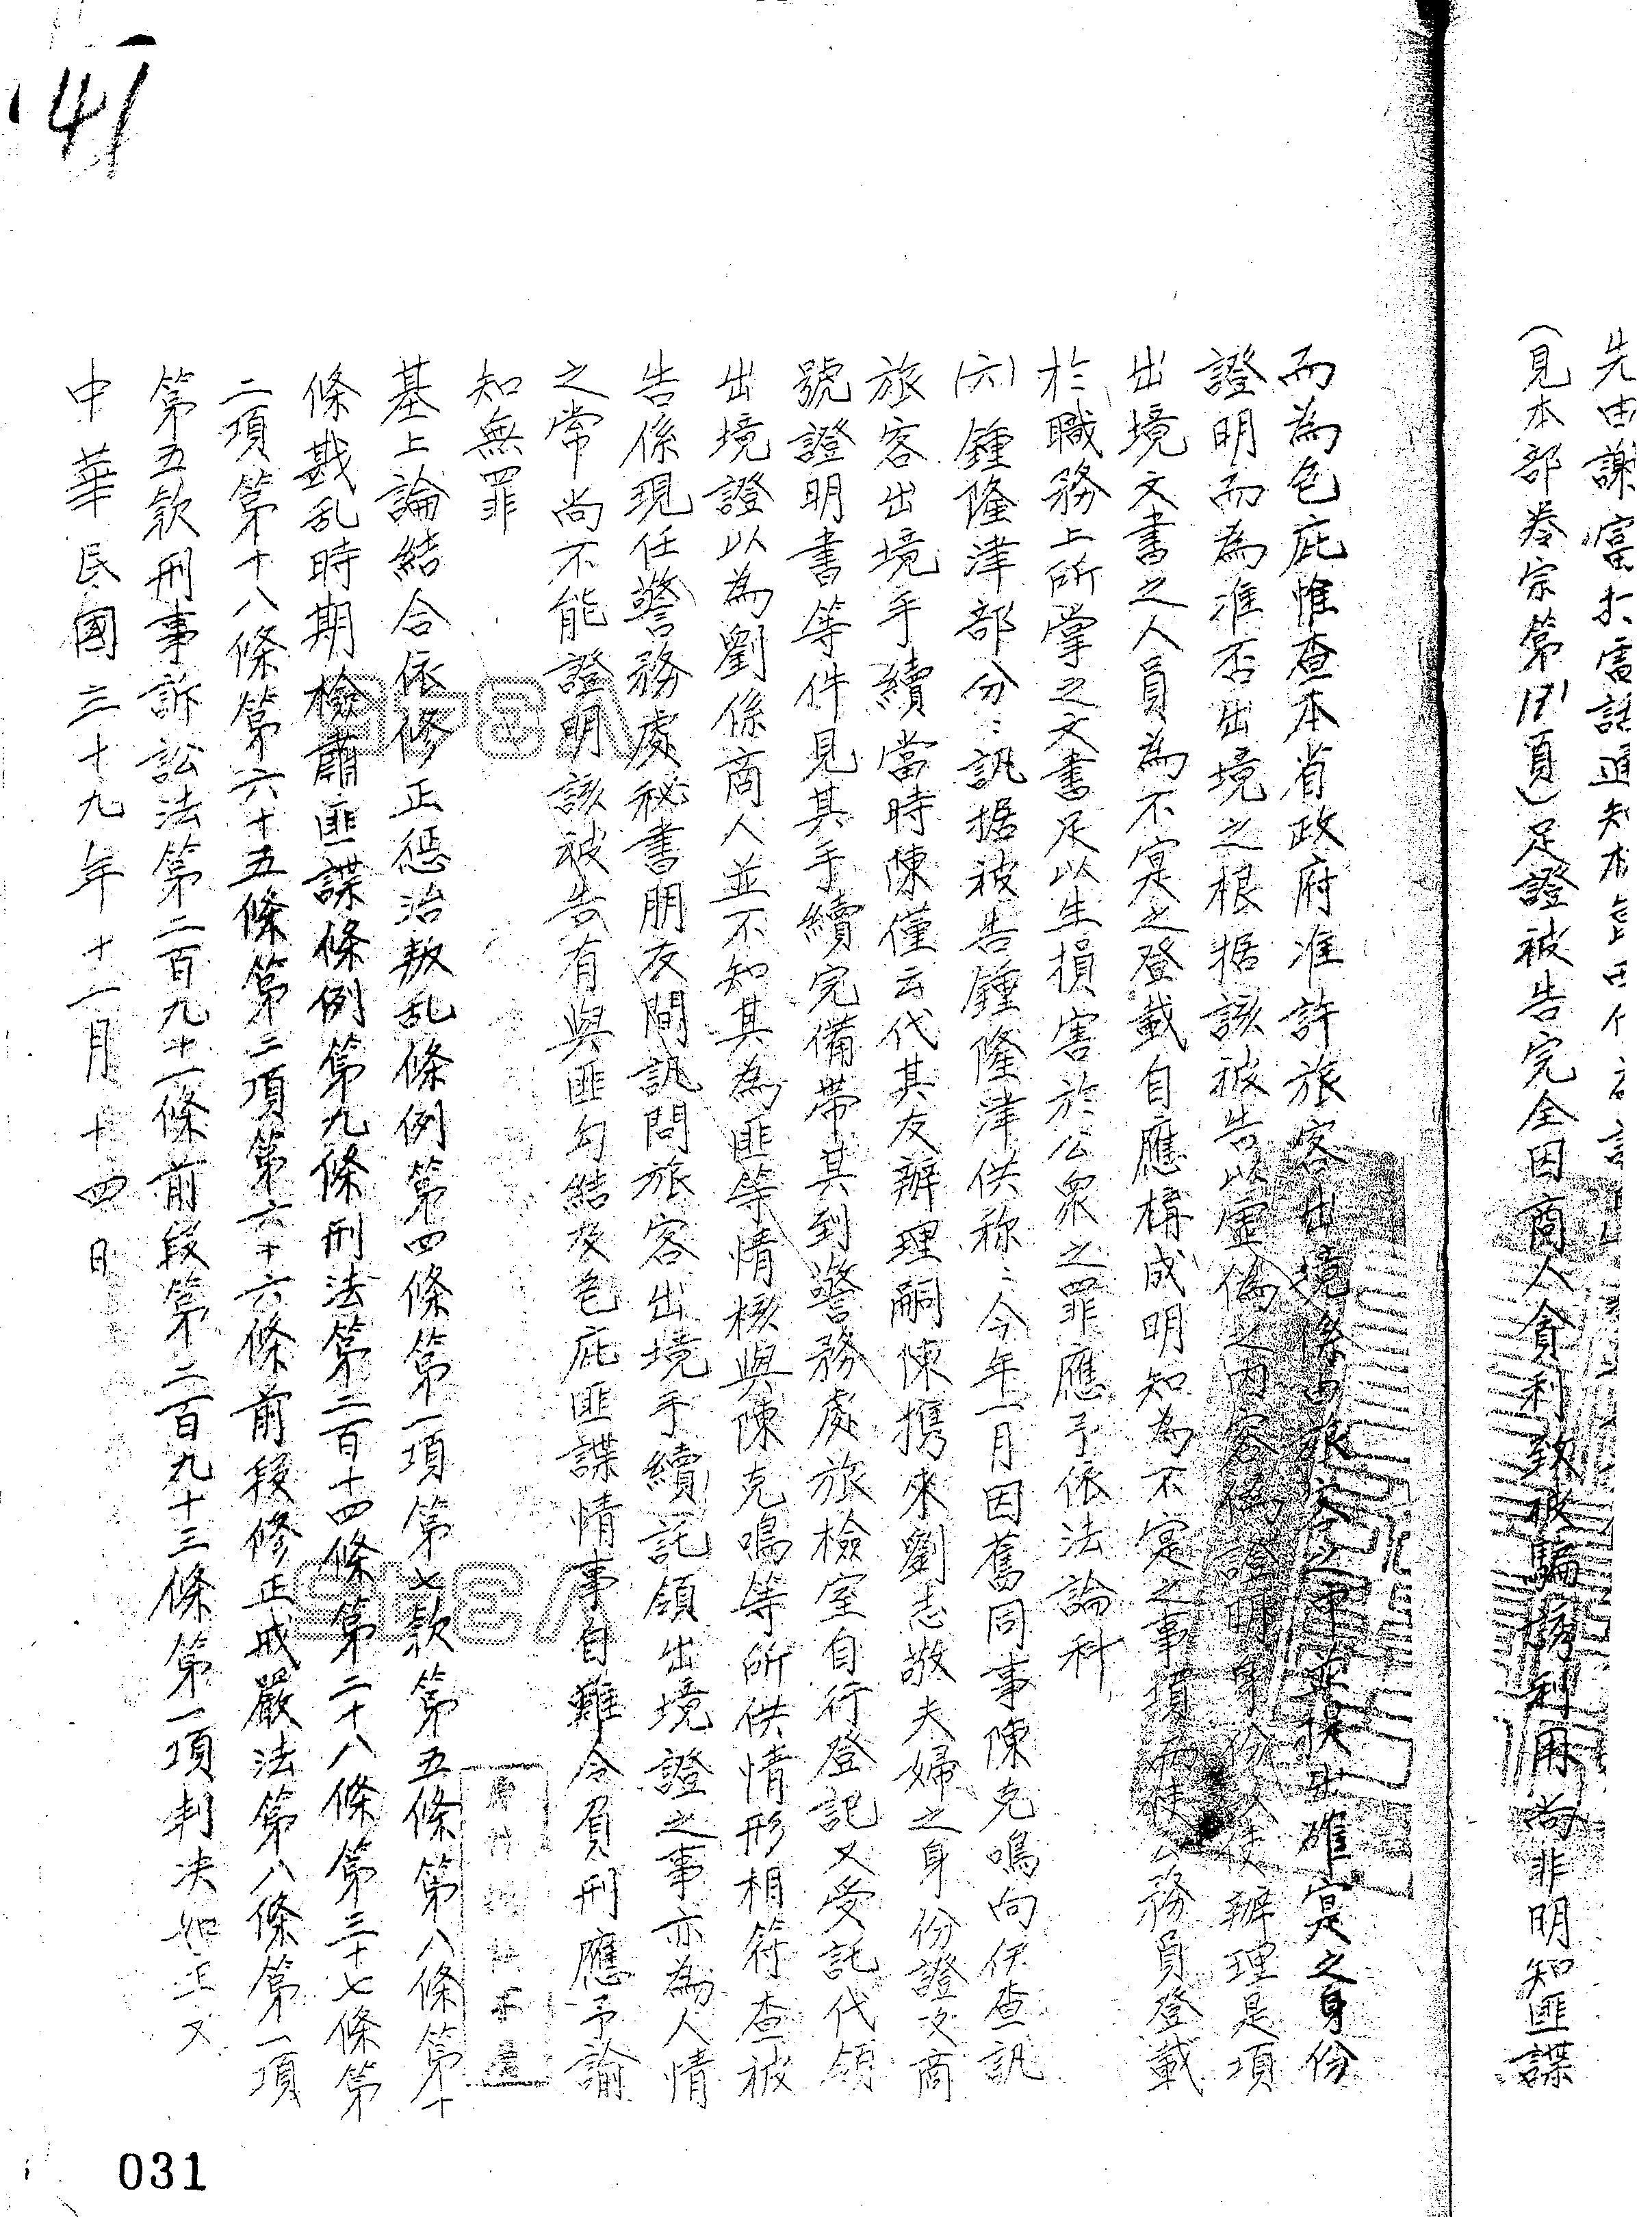 (見本部卷宗第171頁)足證被告完全因商人貪利致被騙誘利用尚非明知匪諜
而為包庇惟查本省政府准許旅客出境係由旅客之申並提出確實之身份
證明而為准否出境之根据該被告以虛偽之內容偽證明身份以使辦理是項
出境文書之人員為不实之登載自應構成明知為不实之事項而使公務員登載
於職務上所掌之文書足以生損害於公眾之罪應予依法論科
(六)鍾隆津部分:訊据被告鍾隆津供称:今年一月因舊同事陳克鳴向伊查訊
旅客出境手續當時陳僅云代其友辦理嗣陳携來劉志敬夫婦之身份證及商
號證明書等件見其手續完備帶其到警務處旅檢室自行登記又受託代領
出境證以為劉係商人並不知其為匪等情核與陳克鳴等所供情形相符查被
告係現任警務處秘書朋友間訊問旅客出境手續託領出境證之事亦為人情
之常尚不能證明該被告有與匪勾結及包庇匪諜情事自難令負刑應予諭
知無罪
基上論結合依修正惩治叛乱條例第四條第一項第七款第五條第八條第十
條戡乱時期檢肅匪諜條例第九條刑法第二百十四條第二十八條第三十七條第
二項第十八條第六十五條第二項第六十六條前段修正戒嚴法第八條第一項
第五款刑事訴訟法第二百九十一條前段第二百九十三條第一項判決如主文
中華民國三十九年十一月十四日
141
031